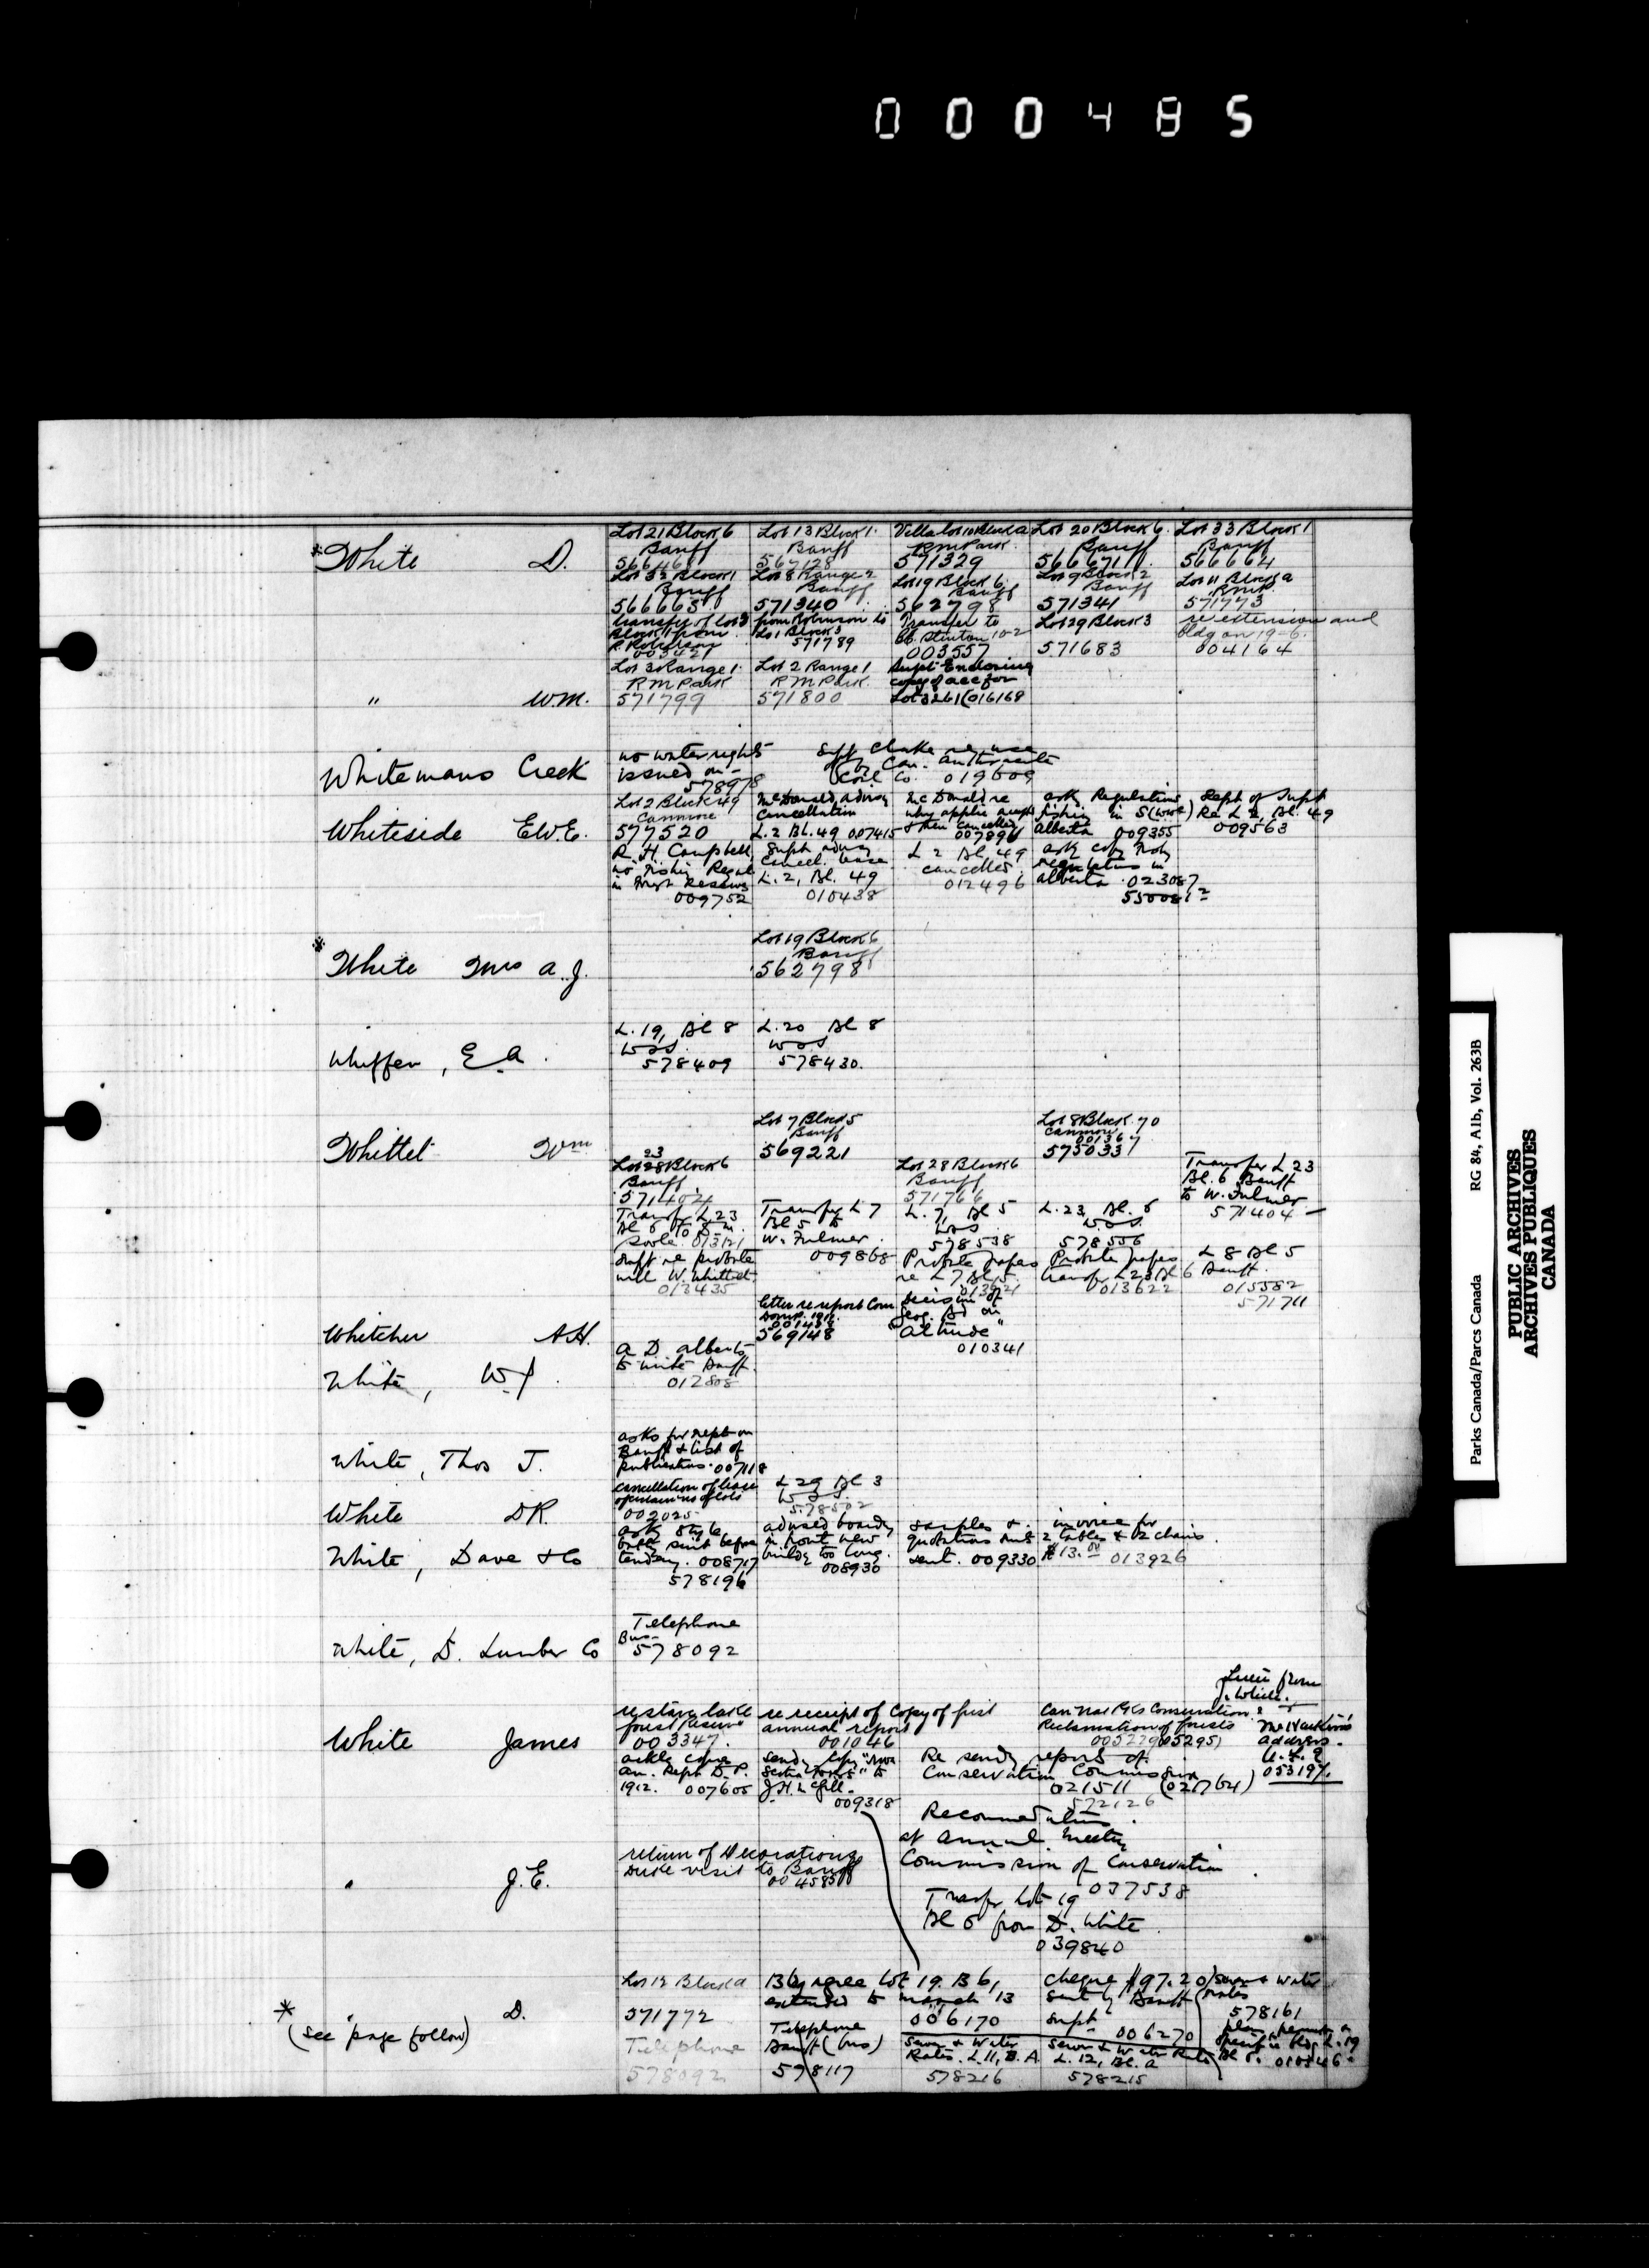 000485
* White D.
Lot 21 Block 6 Banff
Lot 13 Block 1 Banff 567128
Villa Lot 10 Block a RM Park 571329
Lot 20 Block 6 Banff
Lot 33 Block 1 Banff 566664
Lot 32 Block 1 Banff 566665
Lot 8 Range 2 Banff 571340
Lot 19 Block 6 Banff 562798
Lot 9 Block 2 Banff 571341
Lot 11 Block a RMP. 571773
transfer of Lot 3 Block 1 from R. Robinson 003421
from Robinson to Lot 1 Block 3 571789
Transfer to 003557
Lot 29 Block 3 571683
re extension and bldg on 19-6. 004164
" W.M.
Lot 3 Range 1 RM Park 571799
Lot 2 Range 1 RM Park 571800
Supt Enclosing copy of acc for 016168
Whitemans Creek
no water rights issued on - 578978
re use by Can. Anthracite Coal Co. 019609
Whiteside E.W.E.
Lot 2 Block 49 Canmore 577520
McDonald, advisg Cancellation L. 2 Bl. 49 007415
McDonald re why applic accept & then Cancelled 007896
asks Regulations fishing in Alberta 009355
Rept of Supt Re L 2, Bl. 49 009563
R. H. Campbell, no Fishing Regul in Forest Reserves 009752
Supt advisg Cancel. lease L. 2, Bl. 49 010438
L 2 Bl. 49 cancelled 012496
ask copy regulations in Alberta 023087
* White Mrs A. J.
Lot 19 Block 6 Banff 562798
Whiffen, E A.
L. 19, Bl 8 W & S 578409
L. 20 Bl 8 W & S 578430.
Whittel Wm
Lot 7 Block 5 Banff 569221
Lot 8 Block 70 Canmore 001367 575033
23 Lot 28 Block 6 Banff 571404
Lot 28 Block 6 Banff 571766
Transfer L 23 Bl. 6 Banff to W. Fulmer 571404
Transfer L. 23 Bl 6 to 013121
Transfer L 7 Bl 5 to W. Fulmer 009868
L. 7, Bl 5 W & S 578538
L. 23, Bl. 6 W & S 578556
Supt re probate will W. Whittel 013435
Probate papers re L 7 Bl. 5 013621
Probate papers transfer L 23 Bl 6 013622
L 8 Bl 5 Banff. 015582 571711
Whitcher A.H.
letter re report Com Domn. 1911. 569148
Decision of Geog. Bd on "Altrude" 010341
White, W J.
A D Alberta to write Banff 012808
White, Thos J.
asks for rept on Banff & list of publications. 007118
White D.R.
Cancellation of lease 002025
L 29 Bl 3 W & S. 578502
White, Dave & Co
asks style bldg 008717 578196
advised in front new buildg too long. 008930
samples & quotations sent. 009330
invoice for 2 tables & 12 chairs $13.00 013926
White, D. Lumber Co
Telephone Bus- 578092
White James
re Slave Lake forest Reserve 003347.
re receipt of Copy of first annual report 001046
Can Nat Pks Conservation & Reclamation of forests
Letter from J. White. address. 053197.
asks copies An. Rept D. P. 1912. 007605
009318
Re sendg report of Conservation Commission 021511 572126
Recommendations at Annual Meeting Commission of Conservation 037538
Transfer Lot 19 Bl 6 from D. White 039840
" J.E.
return of Decorations Duke visit to Banff
* (see page follow) " D.
Lot 12 Block a 571772 Telephone 578092
Bldg agree Lot 19. B 6, extended to March 13 006170
Telephone Banff (bus) 578117
Sewer & Water Rates. L. 11, B. A 578216
Cheque $97.20 sent by Banff Supt 006270
Sewer & Water Rates L. 12, Bl. a 578215
Sewer & Water Rates 578161
Parks Canada/Parcs Canada RG 84, A1b, Vol. 263B
PUBLIC ARCHIVES
ARCHIVES PUBLIQUES
CANADA